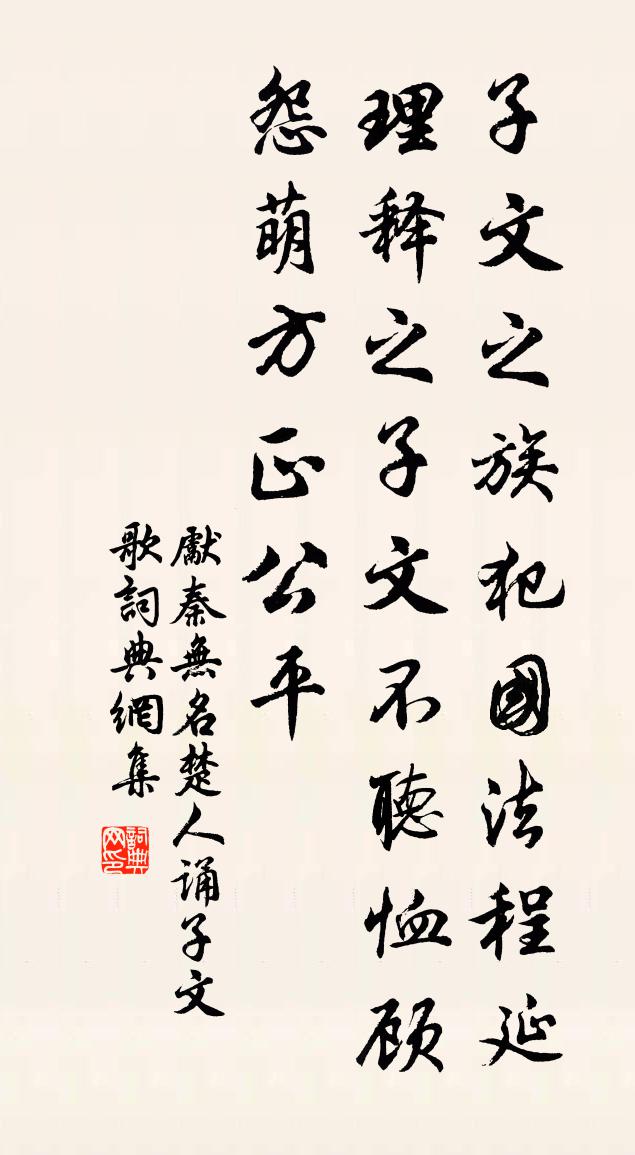 子文之族犯國法程延
理释之子文不聽恤顾
怨萌方正公平
獻秦無名楚人诵子文
歌詞典網集
詞典
网印